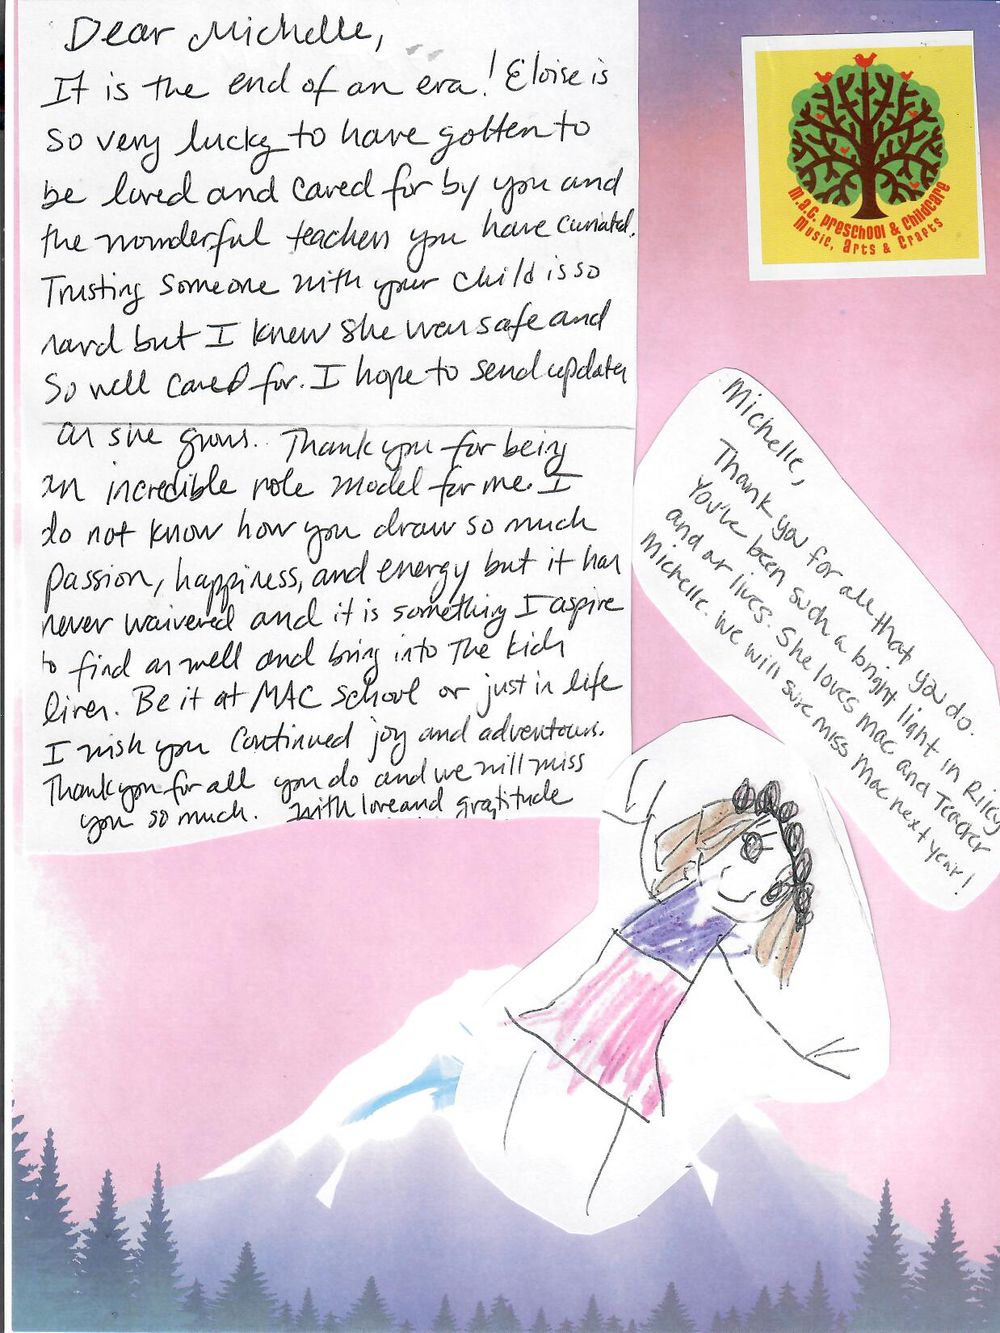 Dear Michelle,
It is the end of an era! Eloise is
so very lucky to have gotten to
be loved and cared for by you and
the wonderful teachers you have curated.
Trusting someone with your child is so
hard but I knew she was safe and
so well cared for. I hope to send updates
as she grows.. Thank you for being
an incredible role model for me. I
do not know how you draw so much
passion, happiness, and energy but it has
never waivered and it is something I aspire
to find as well and bring into the kids
lives. Be it at MAC school or just in life
I wish you continued joy and adventours.
Thank you for all you do and we will miss
you so much. With love and gratitude
M.A.C. Preschool & Childcare
Music, Arts & Crafts
Michelle,
Thank you for all that you do.
You've been such a bright light in Riley
and or lives. She loves mac and Teacher
Michelle. We will sure miss Mac next year!